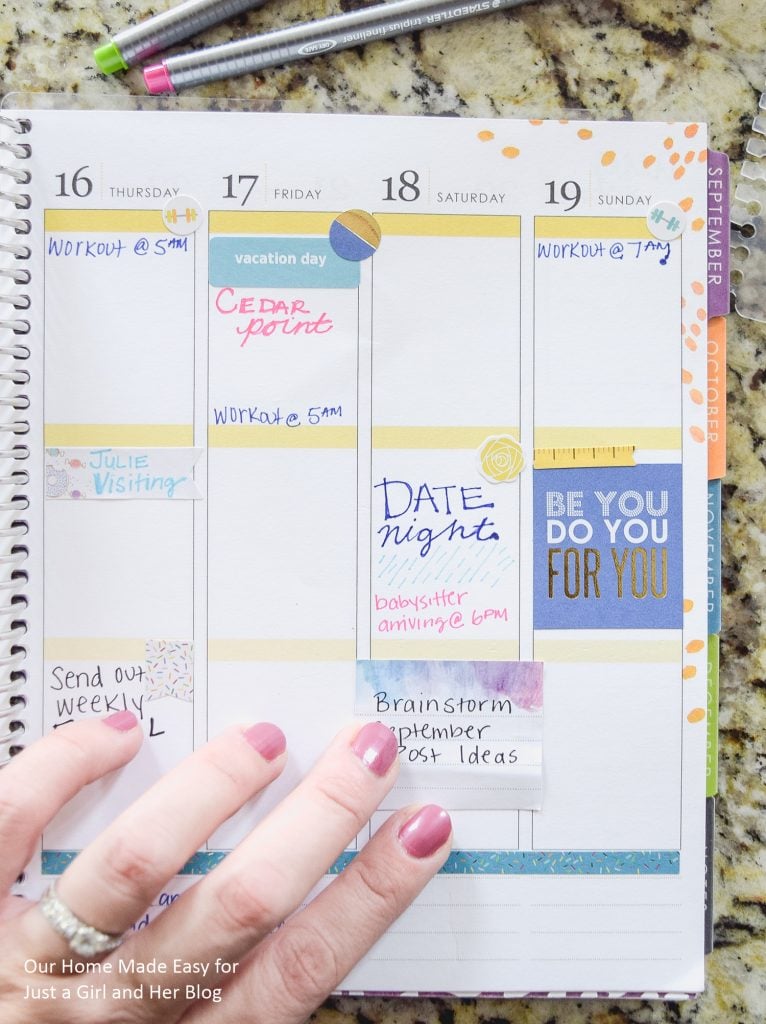 STAEDTLER triplus fineliner
16 THURSDAY
17 FRIDAY
18 SATURDAY
19 SUNDAY
Workout @ 5AM
vacation day
CEDAR
point
Workout @ 5AM
Workout @ 7AM
JULIE
Visiting
DATE
night.
babysitter
arriving @ 6PM
BE YOU
DO YOU
FOR YOU
Send out
weekly
Brainstorm
September
Post Ideas
SEPTEMBER
OCTOBER
NOVEMBER
DECEMBER
NOTES
Our Home Made Easy for
Just a Girl and Her Blog